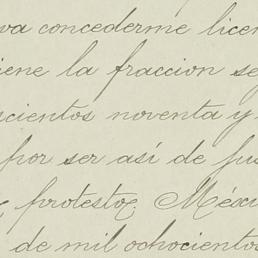 va concederme licen
iene la fraccion se
scientos noventa y
por ser así de jus
protesto. Méxi
de mil ochociento